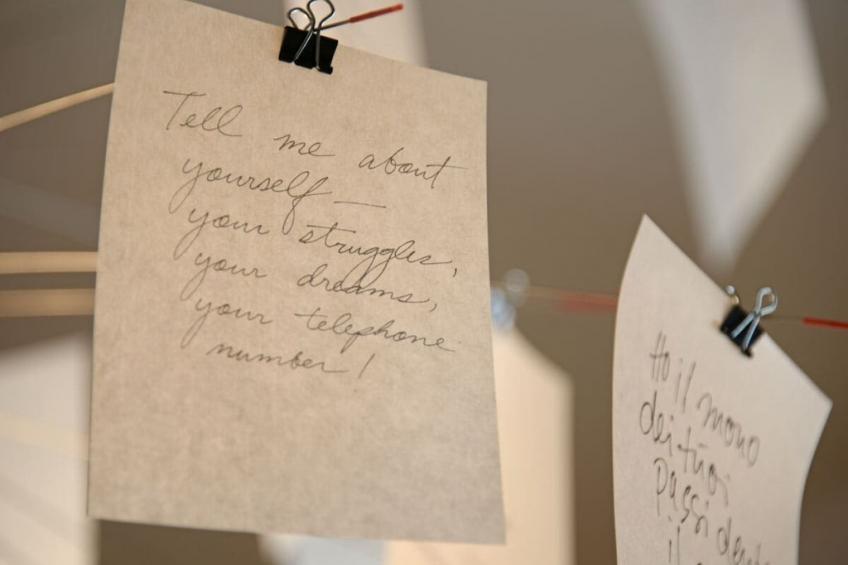 Tell me about
yourself —
your struggles,
your dreams,
your telephone
number!
Ho il mono
dei tuoi
passi dentro
il